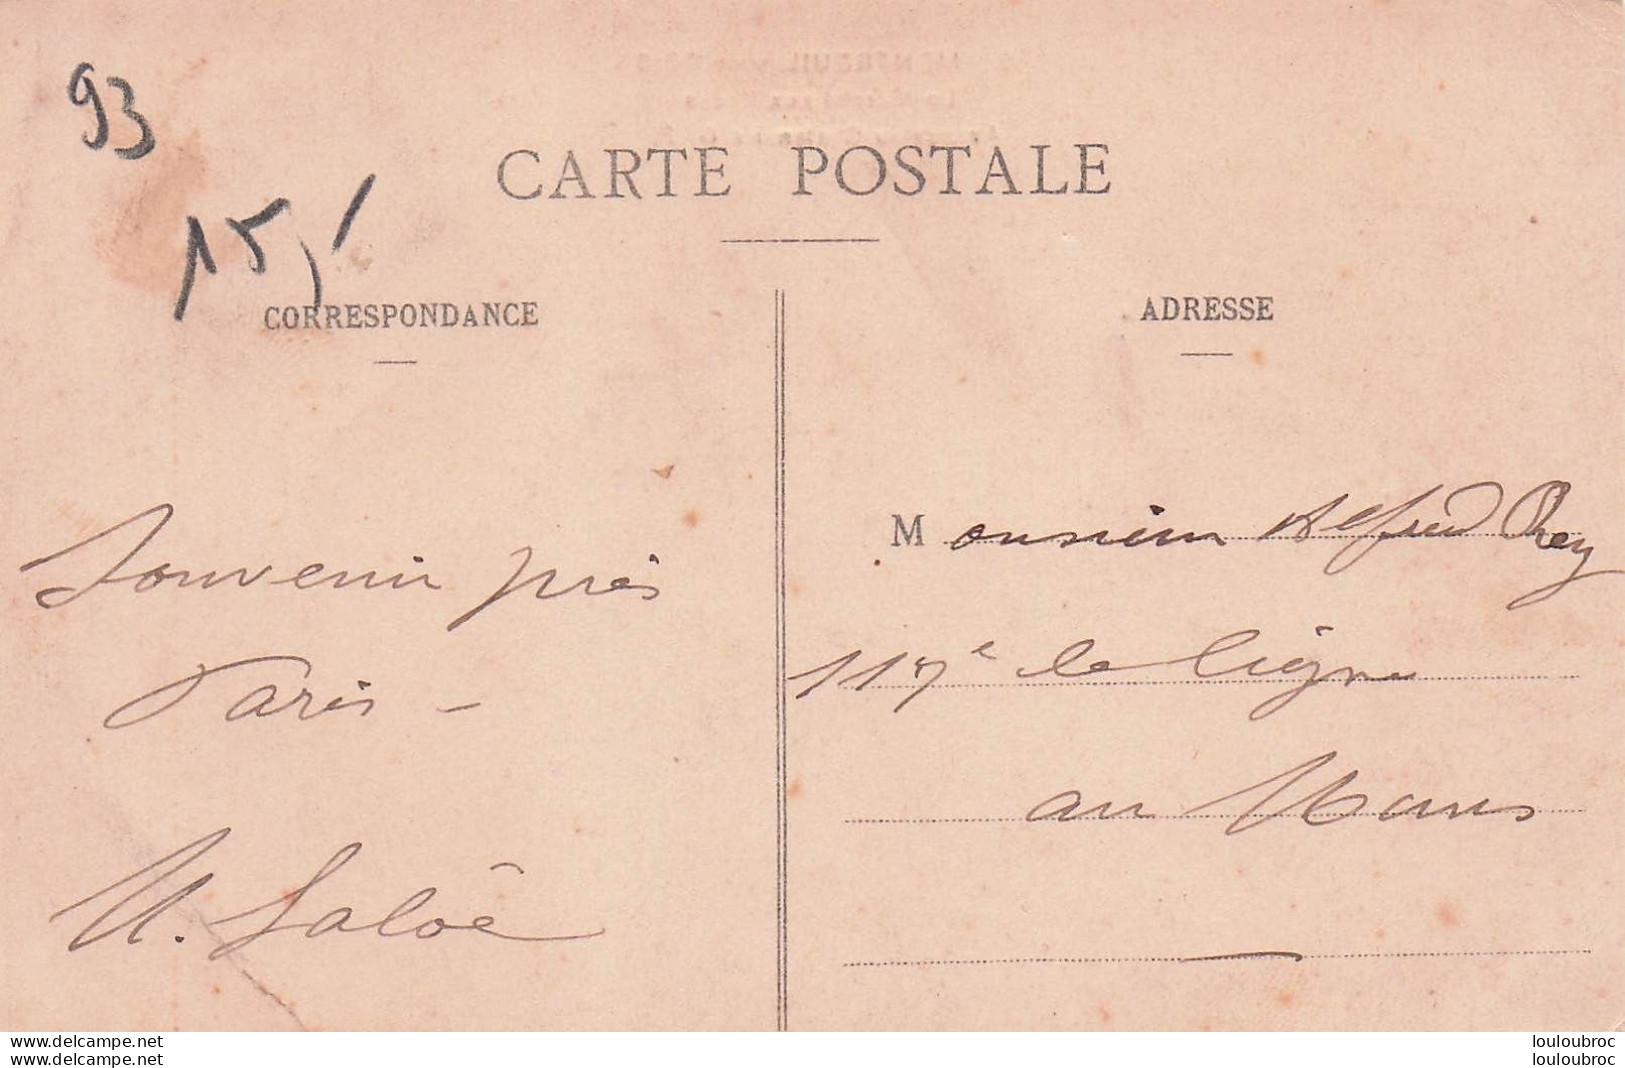 93
15,-
CARTE POSTALE
CORRESPONDANCE
ADRESSE
Souvenir près
Paris -
M. Saloê
Monsieur Alfred Rey
117e de ligne
au Mans
www.delcampe.net
www.delcampe.net
louloubroc
louloubroc